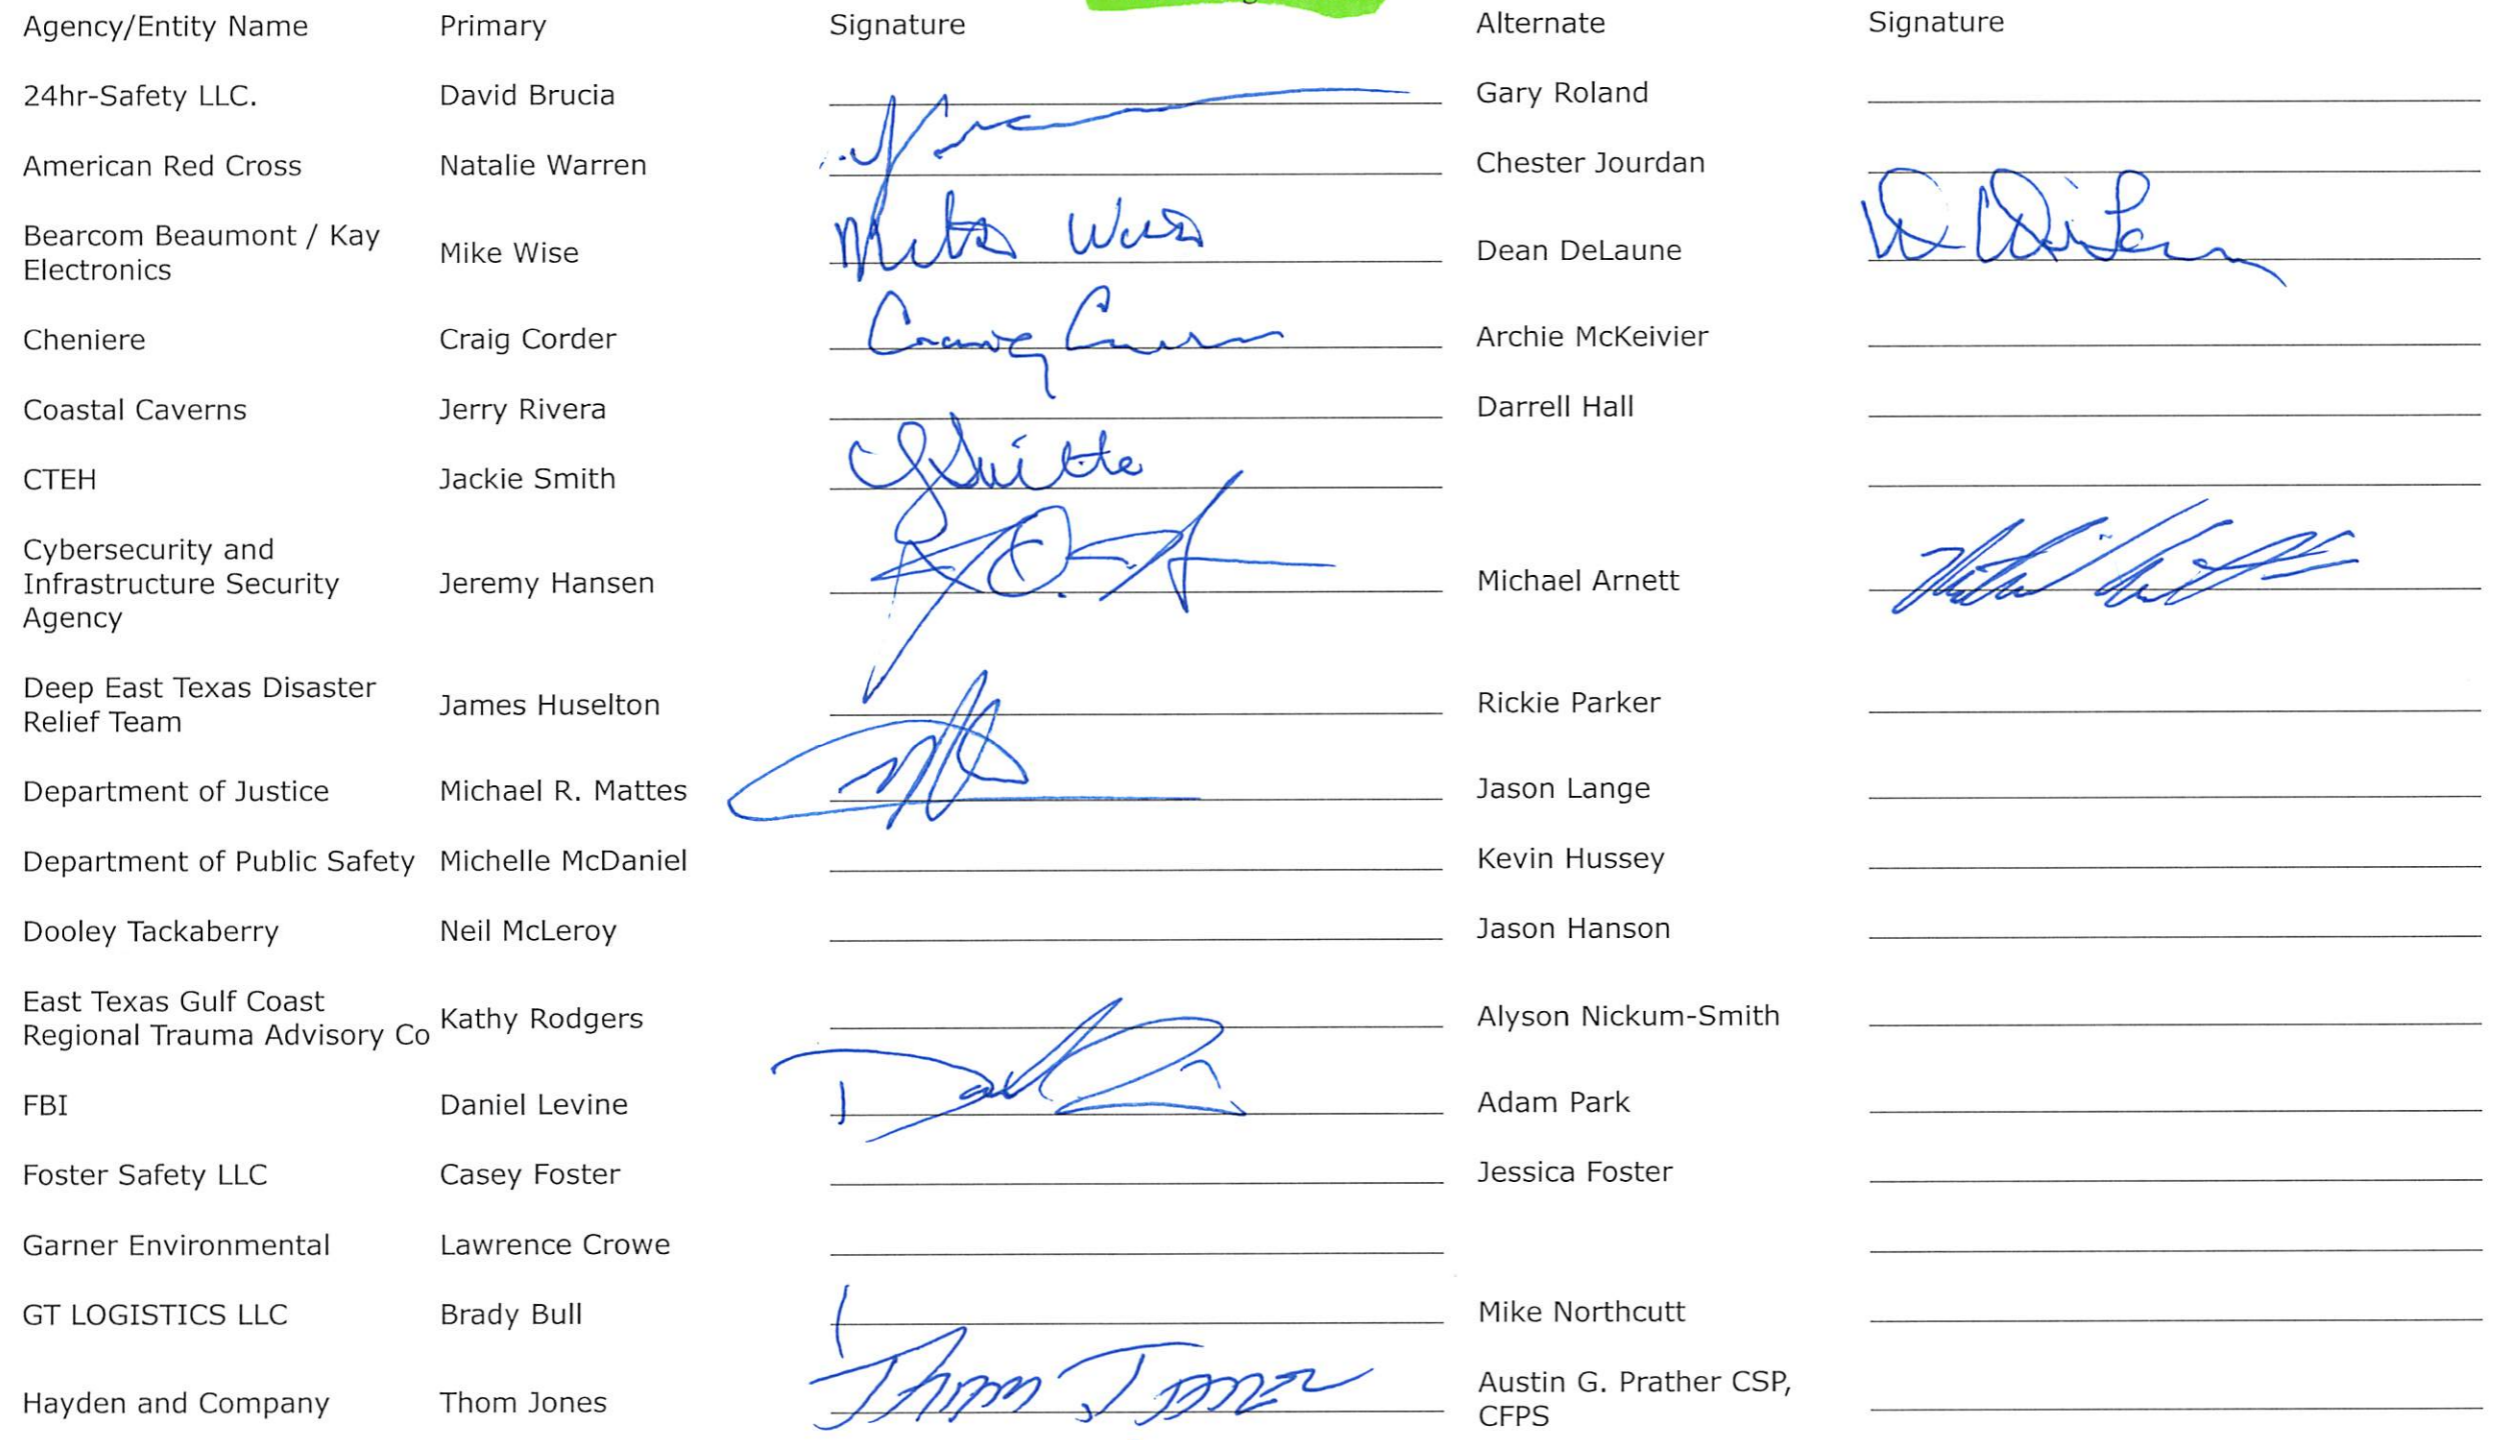 Agency/Entity Name Primary Signature Alternate Signature
24hr-Safety LLC. David Brucia Gary Roland
American Red Cross Natalie Warren Chester Jourdan
Bearcom Beaumont / Kay
Electronics Mike Wise Dean DeLaune
Cheniere Craig Corder Craig Archie McKeivier
Coastal Caverns Jerry Rivera Darrell Hall
CTEH Jackie Smith
Cybersecurity and
Infrastructure Security
Agency Jeremy Hansen Michael Arnett
Deep East Texas Disaster
Relief Team James Huselton Rickie Parker
Department of Justice Michael R. Mattes Jason Lange
Department of Public Safety Michelle McDaniel Kevin Hussey
Dooley Tackaberry Neil McLeroy Jason Hanson
East Texas Gulf Coast
Regional Trauma Advisory Co Kathy Rodgers Alyson Nickum-Smith
FBI Daniel Levine Adam Park
Foster Safety LLC Casey Foster Jessica Foster
Garner Environmental Lawrence Crowe
GT LOGISTICS LLC Brady Bull Mike Northcutt
Hayden and Company Thom Jones Thom Jones Austin G. Prather CSP,
CFPS